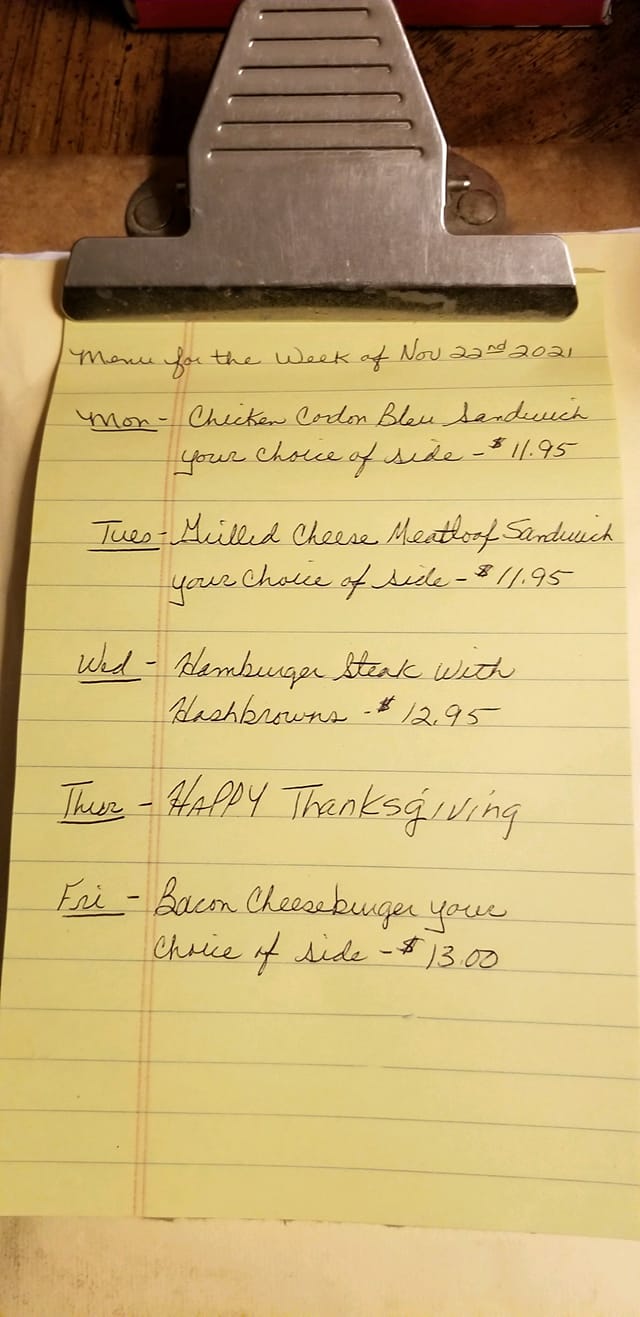 Menu for the Week of Nov 22nd 2021
Mon - Chicken Cordon Bleu Sandwich
your choice of side - $11.95
Tues - Grilled Cheese Meatloaf Sandwich
your choice of side - $11.95
Wed - Hamburger Steak With
Hashbrowns - $12.95
Thur - HAPPY Thanksgiving
Fri - Bacon Cheeseburger your
choice of side - $13.00